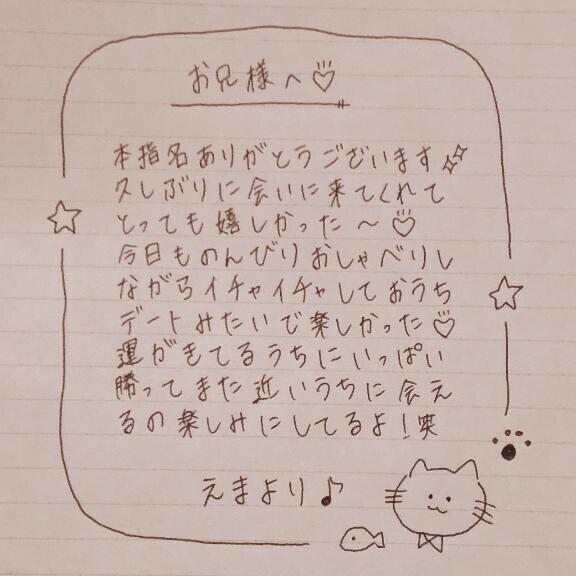 お兄様へ♡
本指名ありがとうございます
久しぶりに会いに来てくれて
とっても嬉しかった〜♡
今日ものんびりおしゃべりし
ながらイチャイチャしておうち
デートみたいで楽しかった♡
運がきてるうちにいっぱい
勝ってまた近いうちに会え
るの楽しみにしてるよ!笑
えまより♪